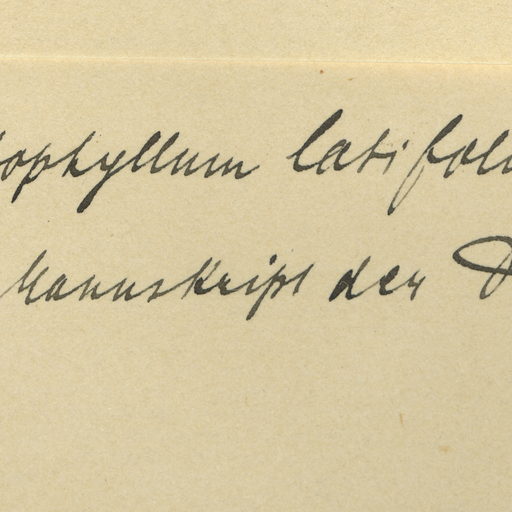 ophyllum latifol
Manuskript der D